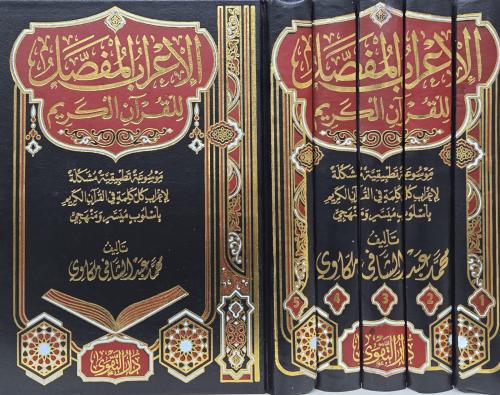 الإعراب المفصل
للقرآن الكريم
موسوعة تطبيقية مشكلة
لإعراب كل كلمة في القرآن الكريم
بأسلوب ميسر ومنهجي
تأليف
محمد عبد الشافي مكاوي
دار التقوى
الإعراب المفصل
للقرآن الكريم
موسوعة تطبيقية مشكلة
لإعراب كل كلمة في القرآن الكريم
بأسلوب ميسر ومنهجي
تأليف
محمد عبد الشافي مكاوي
5 4 3 2 1
دار التقوى